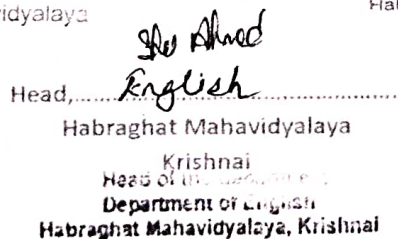 vidyalaya Hat
Ahmed
Head,........English........
Habraghat Mahavidyalaya
Krishnai
Head of the
Department of English
Habraghat Mahavidyalaya, Krishnai